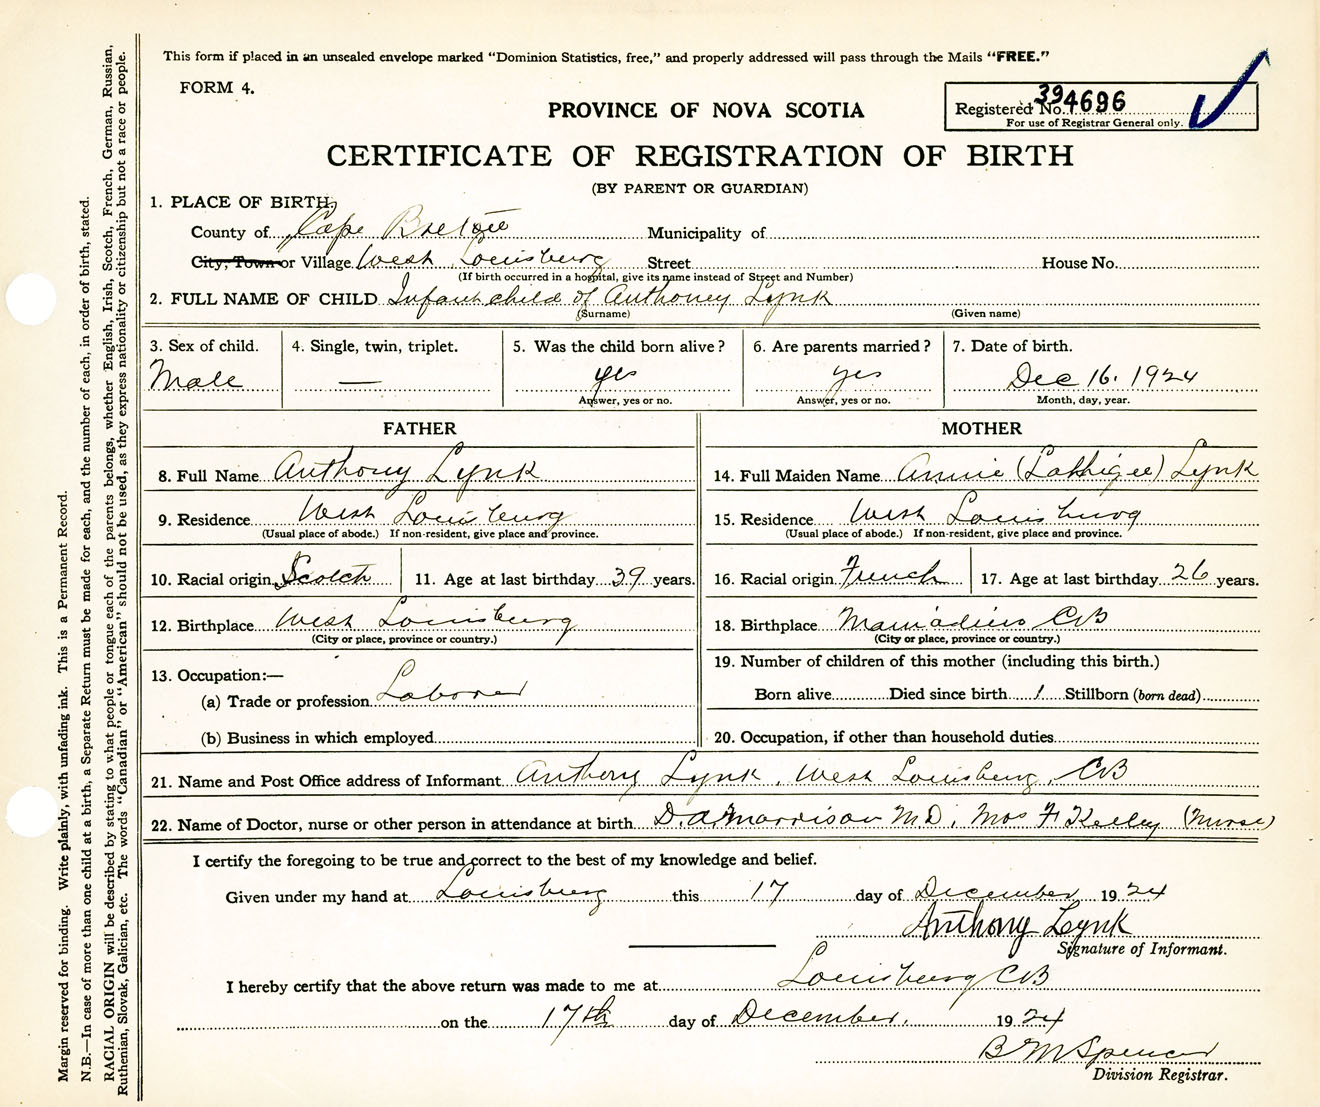 This form if placed in an unsealed envelope marked "Dominion Statistics, free," and properly addressed will pass through the Mails "FREE."
FORM 4.
PROVINCE OF NOVA SCOTIA
Registered No. 394696
For use of Registrar General only.
CERTIFICATE OF REGISTRATION OF BIRTH
(BY PARENT OR GUARDIAN)
1. PLACE OF BIRTH,
County of Cape Breton Municipality of
City, Town or Village West Louisburg Street House No.
(If birth occurred in a hospital, give its name instead of Street and Number)
2. FULL NAME OF CHILD Infant child of Anthoney Lynk
(Surname) (Given name)
3. Sex of child. 4. Single, twin, triplet. 5. Was the child born alive? 6. Are parents married? 7. Date of birth.
Male — yes yes Dec 16. 1924
Answer, yes or no. Answer, yes or no. Month, day, year.
FATHER MOTHER
8. Full Name Anthony Lynk 14. Full Maiden Name Annie Lynk
9. Residence West Louisburg 15. Residence West Louisburg
(Usual place of abode.) If non-resident, give place and province. (Usual place of abode.) If non-resident, give place and province.
10. Racial origin Scotch 11. Age at last birthday 39 years. 16. Racial origin French 17. Age at last birthday 26 years.
12. Birthplace West Louisburg 18. Birthplace CB
(City or place, province or country.) (City or place, province or country.)
13. Occupation:— 19. Number of children of this mother (including this birth.)
(a) Trade or profession Laborer Born alive Died since birth 1 Stillborn (born dead)
(b) Business in which employed 20. Occupation, if other than household duties
21. Name and Post Office address of Informant Anthony Lynk, West Louisburg, CB
22. Name of Doctor, nurse or other person in attendance at birth D.A. Morrison M.D, Mrs F Kelley (Nurse)
I certify the foregoing to be true and correct to the best of my knowledge and belief.
Given under my hand at Louisburg this 17 day of December 1924
Anthony Lynk
Signature of Informant.
I hereby certify that the above return was made to me at Louisburg CB
on the 17th day of December, 1924
B M Spencer
Division Registrar.
Margin reserved for binding. Write plainly, with unfading ink. This is a Permanent Record.
N.B.—In case of more than one child at a birth, a Separate Return must be made for each, and the number of each, in order of birth, stated.
RACIAL ORIGIN will be described by stating to what people or tongue each of the parents belongs, whether English, Irish, Scotch, French, German, Russian,
Ruthenian, Slovak, Galician, etc. The words "Canadian" or "American" should not be used, as they express nationality or citizenship but not a race or people.